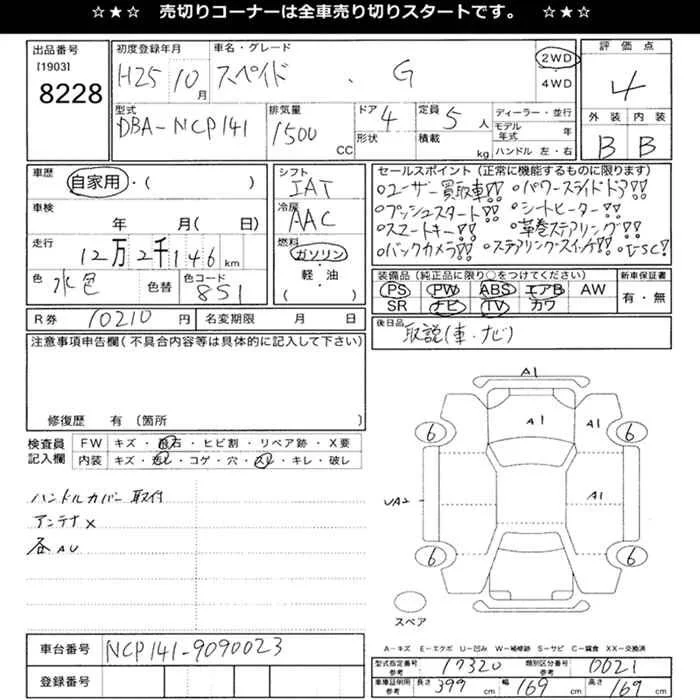 ☆★☆ 売切りコーナーは全車売り切りスタートです。 ☆★☆
出品番号
[1903]
8228
初度登録年月
H25 10月
車名・グレード
スペイド G
2WD
4WD
評価点
4
型式
DBA-NCP141
排気量
1500 CC
ドア 4
形状
定員 5 人
積載 kg
ディーラー・並行
モデル年式 年
ハンドル 左・右
外装 内装
B B
車歴
自家用・( )
車検
年 月( 日)
走行
12万2千146 km
色
水色
色替
色コード
851
シフト
IAT
冷房
AAC
燃料
ガソリン
・
軽・油
( )
セールスポイント(正常に機能するものに限ります)
○ユーザー買取車!! ○パワースライドドア!!
○プッシュスタート!! ○シートヒーター!!
○スマートキー!! ○革巻ステアリング!!
○バックカメラ!! ○ステアリングスイッチ!!
装備品(純正品に限り○をつけてください)
PS PW ABS エアB AW
SR ナビ TV カワ
新車保証書
有・無
R券 10210 円
名変期限 月 日
後日品
取説(車・ナビ)
注意事項申告欄(不具合内容等は具体的に記入して下さい)
修復歴 有 〔箇所 〕
検査員
記入欄
FW キズ・飛石・ヒビ割・リペア跡・X要
内装 キズ・汚レ・コゲ・穴・スレ・キレ・破レ
ハンドルカバー取付
アンテナ×
各AU
A1
A1
A1
A1
UA2
6
6
6
6
スペア
A-キズ E-エクボ U-凹み W-補修跡 S-サビ C-腐食 XX-交換済
車台番号
NCP141-9090023
登録番号
型式指定番号 参考 17320
類別区分番号 参考 0021
車庫証明用 参考 長さ 399 cm 幅 169 cm 高さ 169 cm